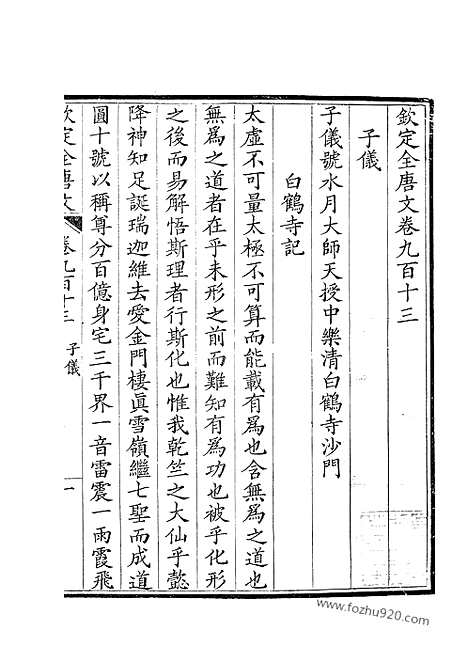 欽定全唐文卷九百十三
子儀
子儀號水月大師天授中樂清白鶴寺沙門
白鶴寺記
太虛不可量太極不可算而能載有爲也含無爲之道也
無爲之道者在乎未形之前而難知有爲功也被乎化形
之後而易解悟斯理者行斯化也惟我乾竺之大仙乎懿
降神知足誕瑞迦維去愛金門棲眞雪嶺繼七聖而成道
圓十號以稱尊分百億身宅三千界一音雷震一雨霞飛
欽定全唐文 卷九百十三 子儀 一
www.fozhu920.com